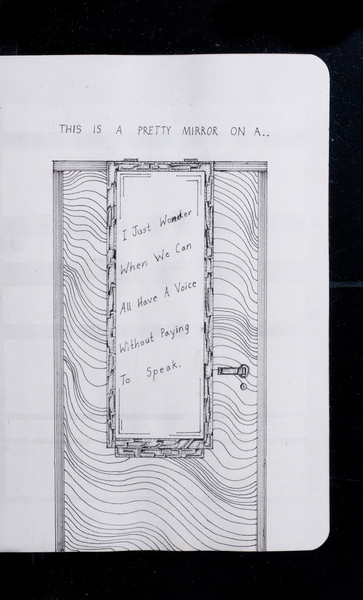 THIS IS A PRETTY MIRROR ON A..
I Just Wonder
When We Can
All Have A Voice
Without Paying
To Speak.